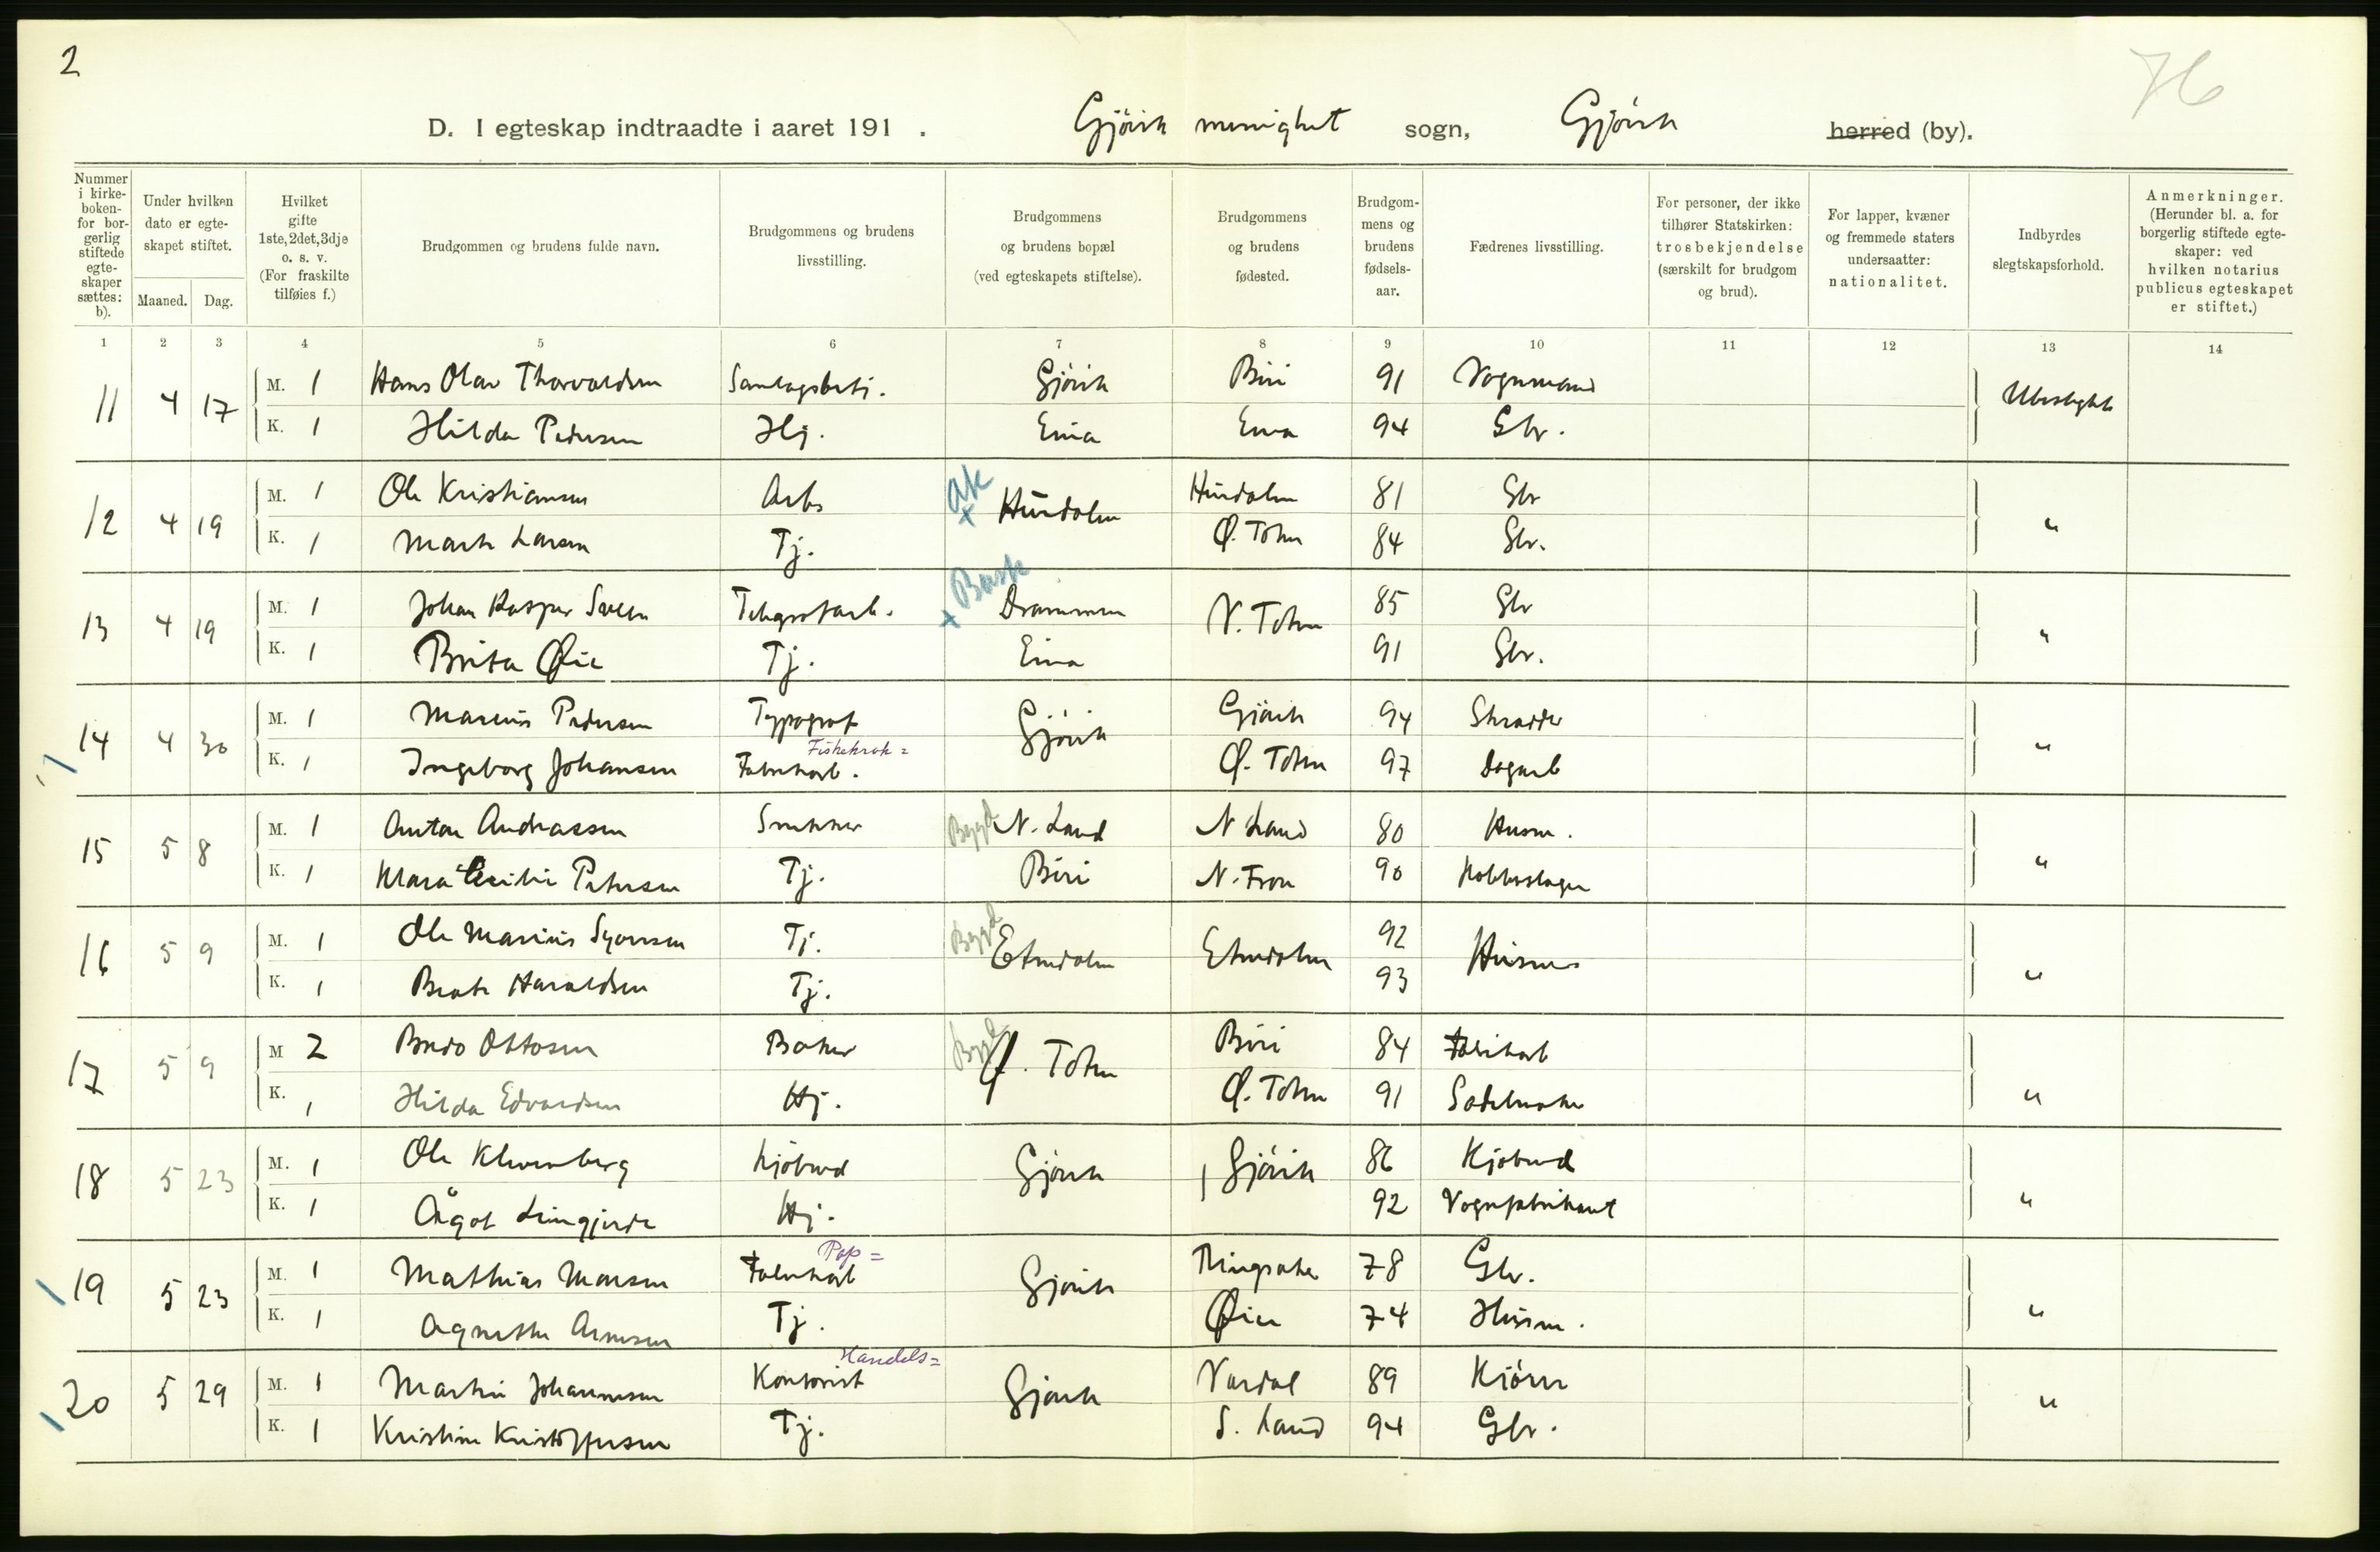 2
76
D. I egteskap indtraadte i aaret 191 . Gjövik menighet sogn, Gjövik herred (by).
Nummer i kirkeboken- for borgerlig stiftede egteskaper sættes: b).
Under hvilken dato er egteskapet stiftet.
Maaned. Dag.
Hvilket gifte 1ste, 2det, 3dje o. s. v. (For fraskilte tilføies f.)
Brudgommen og brudens fulde navn.
Brudgommens og brudens livsstilling.
Brudgommens og brudens bopæl (ved egteskapets stiftelse).
Brudgommens og brudens fødested.
Brudgommens og brudens fødselsaar.
Fædrenes livsstilling.
For personer, der ikke tilhører Statskirken: trosbekjendelse (særskilt for brudgom og brud).
For lapper, kvæner og fremmede staters undersaatter: nationalitet.
Indbyrdes slegtskapsforhold.
Anmerkninger. (Herunder bl. a. for borgerlig stiftede egteskaper: ved hvilken notarius publicus egteskapet er stiftet.)
1 2 3 4 5 6 7 8 9 10 11 12 13 14
11 4 17 M. 1 Hans Olav Thorvaldsen Samlagsbetj. Gjövik Biri 91 Vognmand Ubeslegtet
K. 1 Hilda Pedersen Hj. Eina Eina 94 Gbr.
12 4 19 M. 1 Ole Kristiansen Arb. Ak x Hurdalen Hurdalen 81 Gbr "
K. 1 Marte Larsen Tj. Ø. Toten 84 Gbr.
13 4 19 M. 1 Johan Kasper Sveen Telegrafarb. x Busk Drammen V. Toten 85 Gbr "
K. 1 Brita Øie Tj. Eina 91 Gbr.
14 4 30 M. 1 Marius Pedersen Typograf Gjövik Gjövik 94 Skrædder "
Fiskekrok=
K. 1 Ingeborg Johansen Fabrikarb. Ø. Toten 97 Dagarb
15 5 8 M. 1 Anton Andreassen Snekker Bygd N. Land N Land 80 Husm. "
K. 1 Klara Cecilie Petersen Tj. Biri N. Fron 90 Kobberslager
16 5 9 M. 1 Ole Marius Syversen Tj. Bygd Etnedalen Etnedalen 92 Husm "
K. 1 Beate Haraldsen Tj. 93
17 5 9 M 2 Bredo Ottosen Baker Bygd Ø. Toten Biri 84 Fabrikarb "
K. 1 Hilda Edvardsen Hj. Ø. Toten 91 Sadelmaker
18 5 23 M. 1 Ole Klevenberg Kjöbmd Gjövik Gjövik 86 Kjöbmd "
K. 1 Ågot Leingjerde Hj. 92 Vognfabrikant
Pap=
19 5 23 M. 1 Mathias Monsen Fabrikarb Gjövik Ringsaker 78 Gbr. "
K. 1 Agnethe Arnesen Tj. Øier 74 Husm.
Handels=
20 5 29 M. 1 Martin Johannesen Kontorist Gjövik Vardal 89 Kjörer "
K. 1 Kristine Kristoffersen Tj. S. Land 94 Gbr.